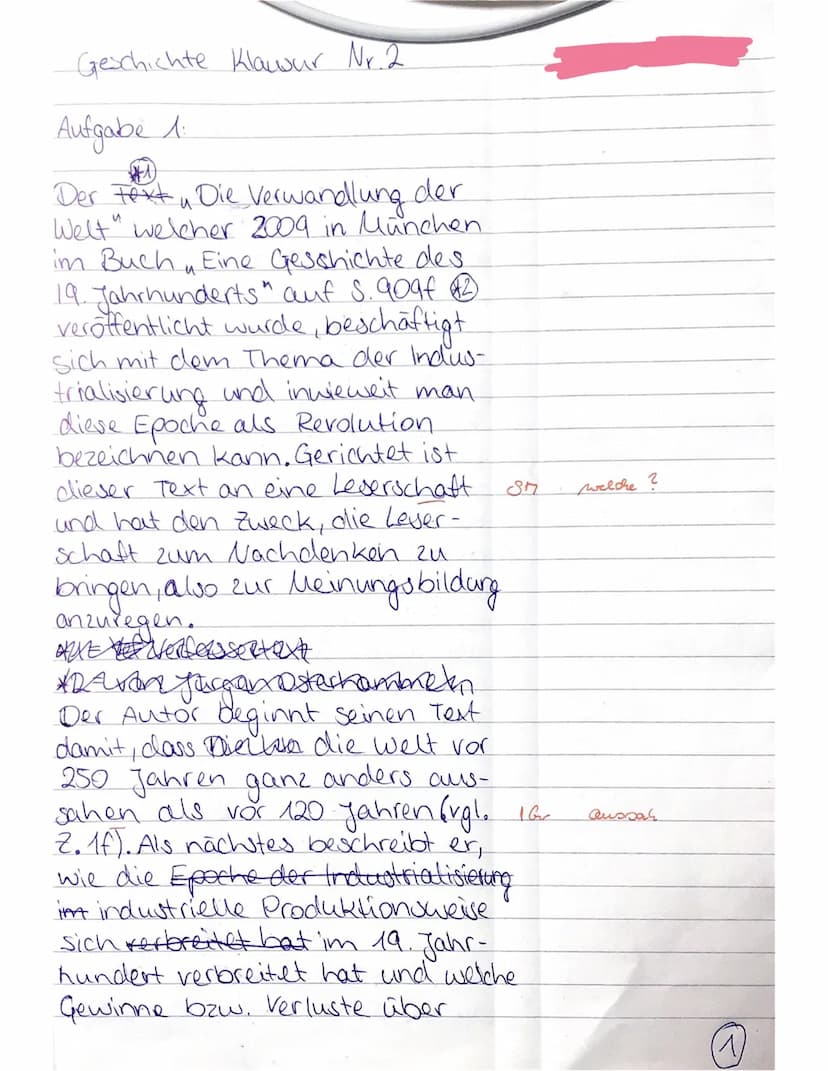 Geschichte Klausur Nr. 2
Aufgabe 1:
*1
Der Text „Die Verwandlung der
Welt" welcher 2009 in München
im Buch „Eine Geschichte des
19. Jahrhunderts" auf S. 909f *2
veröffentlicht wurde, beschäftigt
sich mit dem Thema der Indus-
trialisierung und inwieweit man
diese Epoche als Revolution
bezeichnen kann. Gerichtet ist
dieser Text an eine Leserschaft SM welche?
und hat den Zweck, die Leser-
schaft zum Nachdenken zu
bringen, also zur Meinungsbildung
anzuregen.
Verfassertext
*2 von Jürgen
Der Autor beginnt seinen Text
damit, dass die Welt vor
250 Jahren ganz anders aus-
sahen als vor 120 Jahren (vgl. 1 Gr aussah
Z. 1f). Als nächstes beschreibt er,
wie die Epoche der Industrialisierung
im industrielle Produktionsweise
sich verbreitet hat im 19. Jahr-
hundert verbreitet hat und welche
Gewinne bzw. Verluste über
1